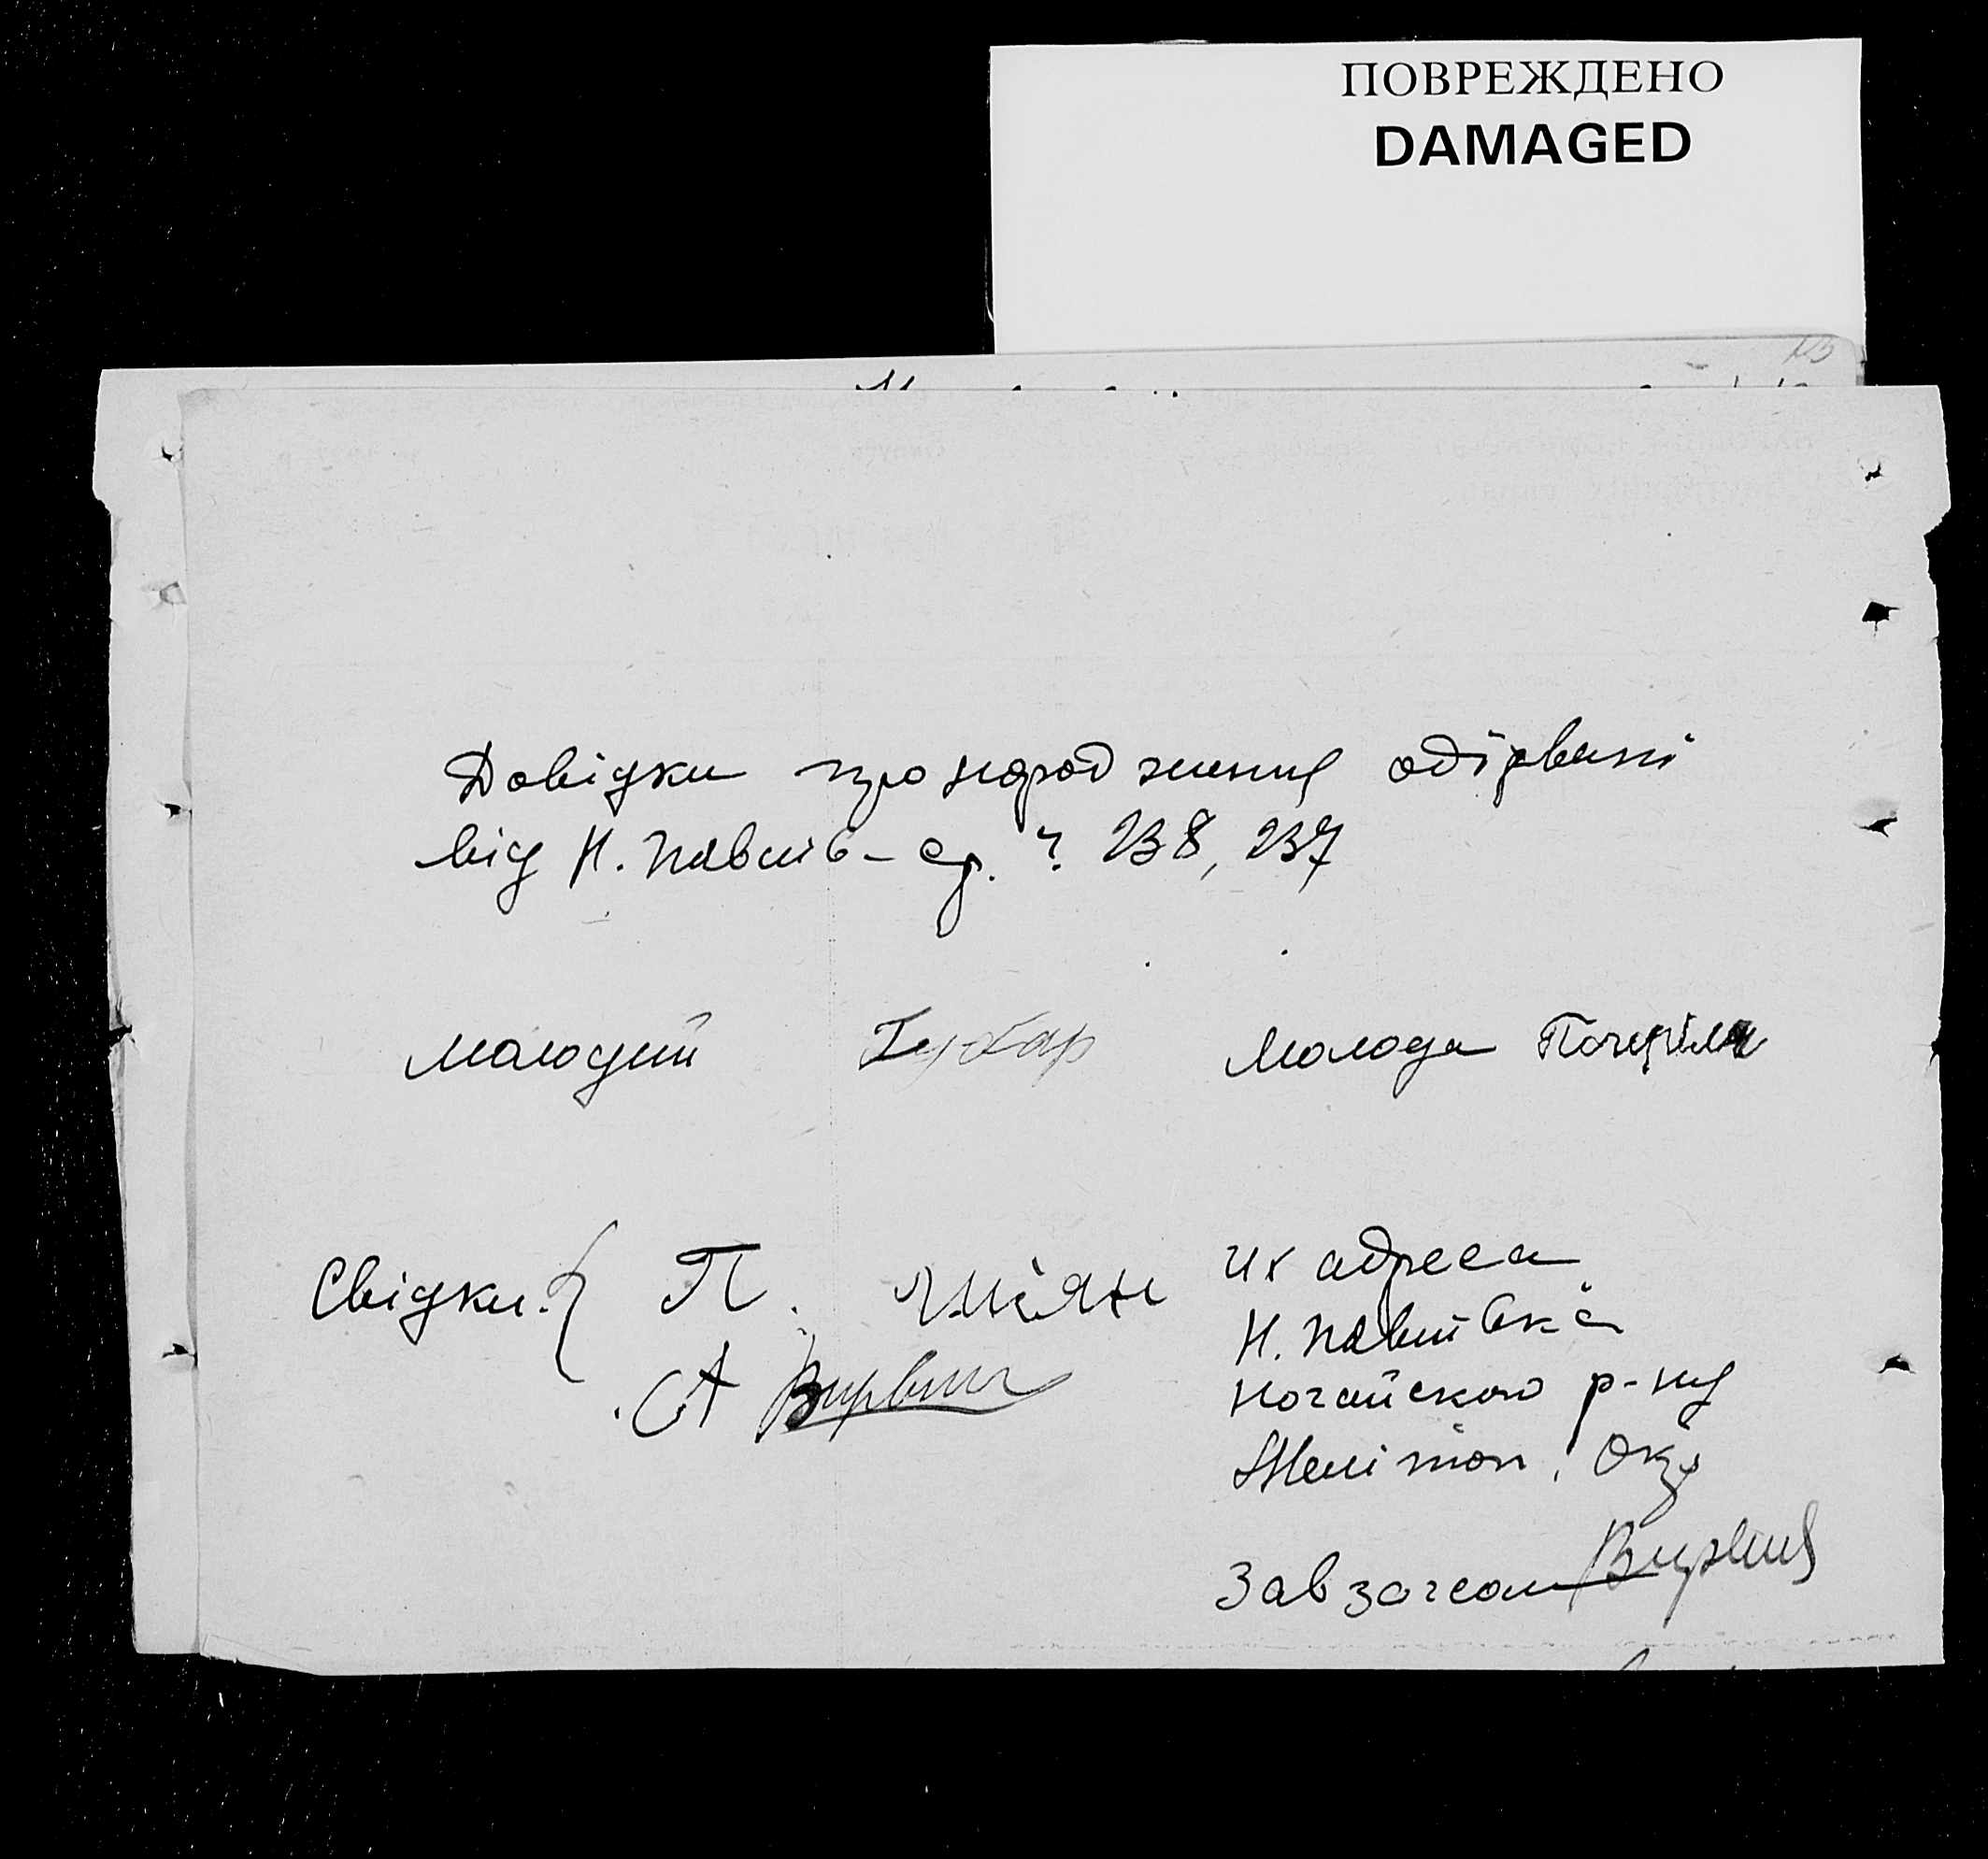 ПОВРЕЖДЕНО
DAMAGED
Довідки про народження одірвані
від Н. Павлів-ср. ч. 238, 237
молодий Гудхар молода
Свідки: П.
А
Их адреса
Н. Павлівка
Ногайского р-ну
Мелітоп. Окр
Завзагсом